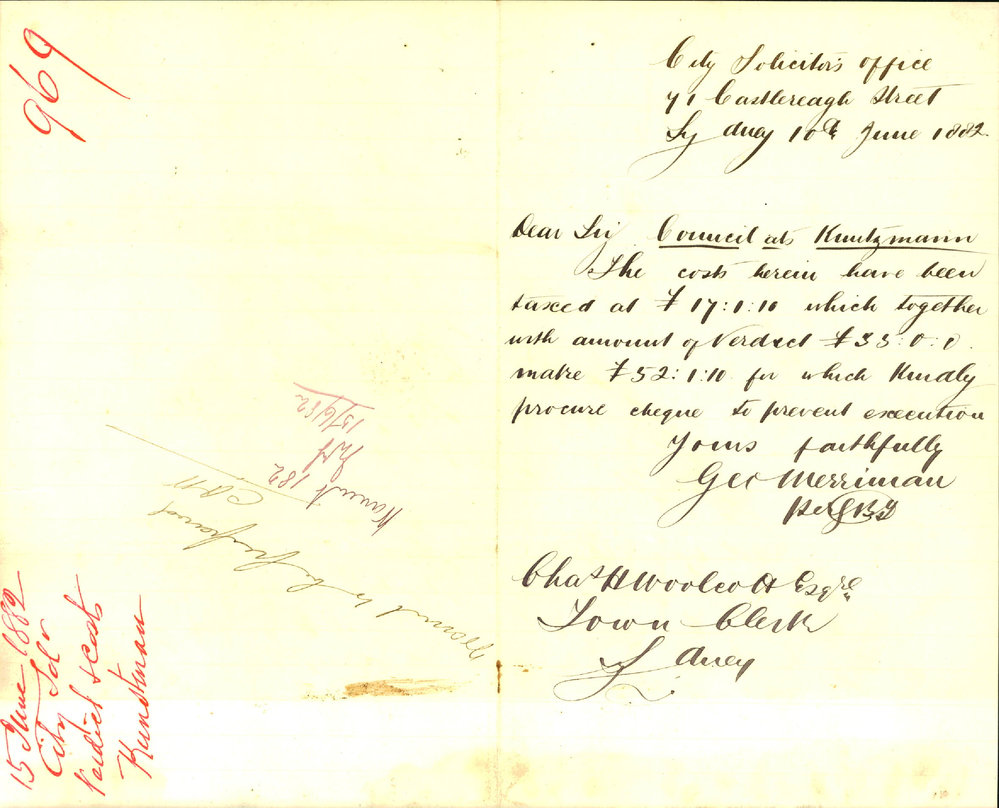 City Solicitor's office
71 Castlereagh Street
Sydney 10th June 1882.
Dear Sir Council ats Kuntzmann
The costs herein have been
taxed at £17:1:10 which together
with amount of Verdict £35:0:0.
make £52:1:10 for which Kindly
procure cheque to prevent execution
Yours faithfully
Geo Merriman
Per
Chas H Woolcott Esqre
Town Clerk
Sydney
969
15 June 1882
City Solr
Verdict & Costs
Kunstman
Warrant to be prepared
C.H.W
Warrant 182
15/6/82